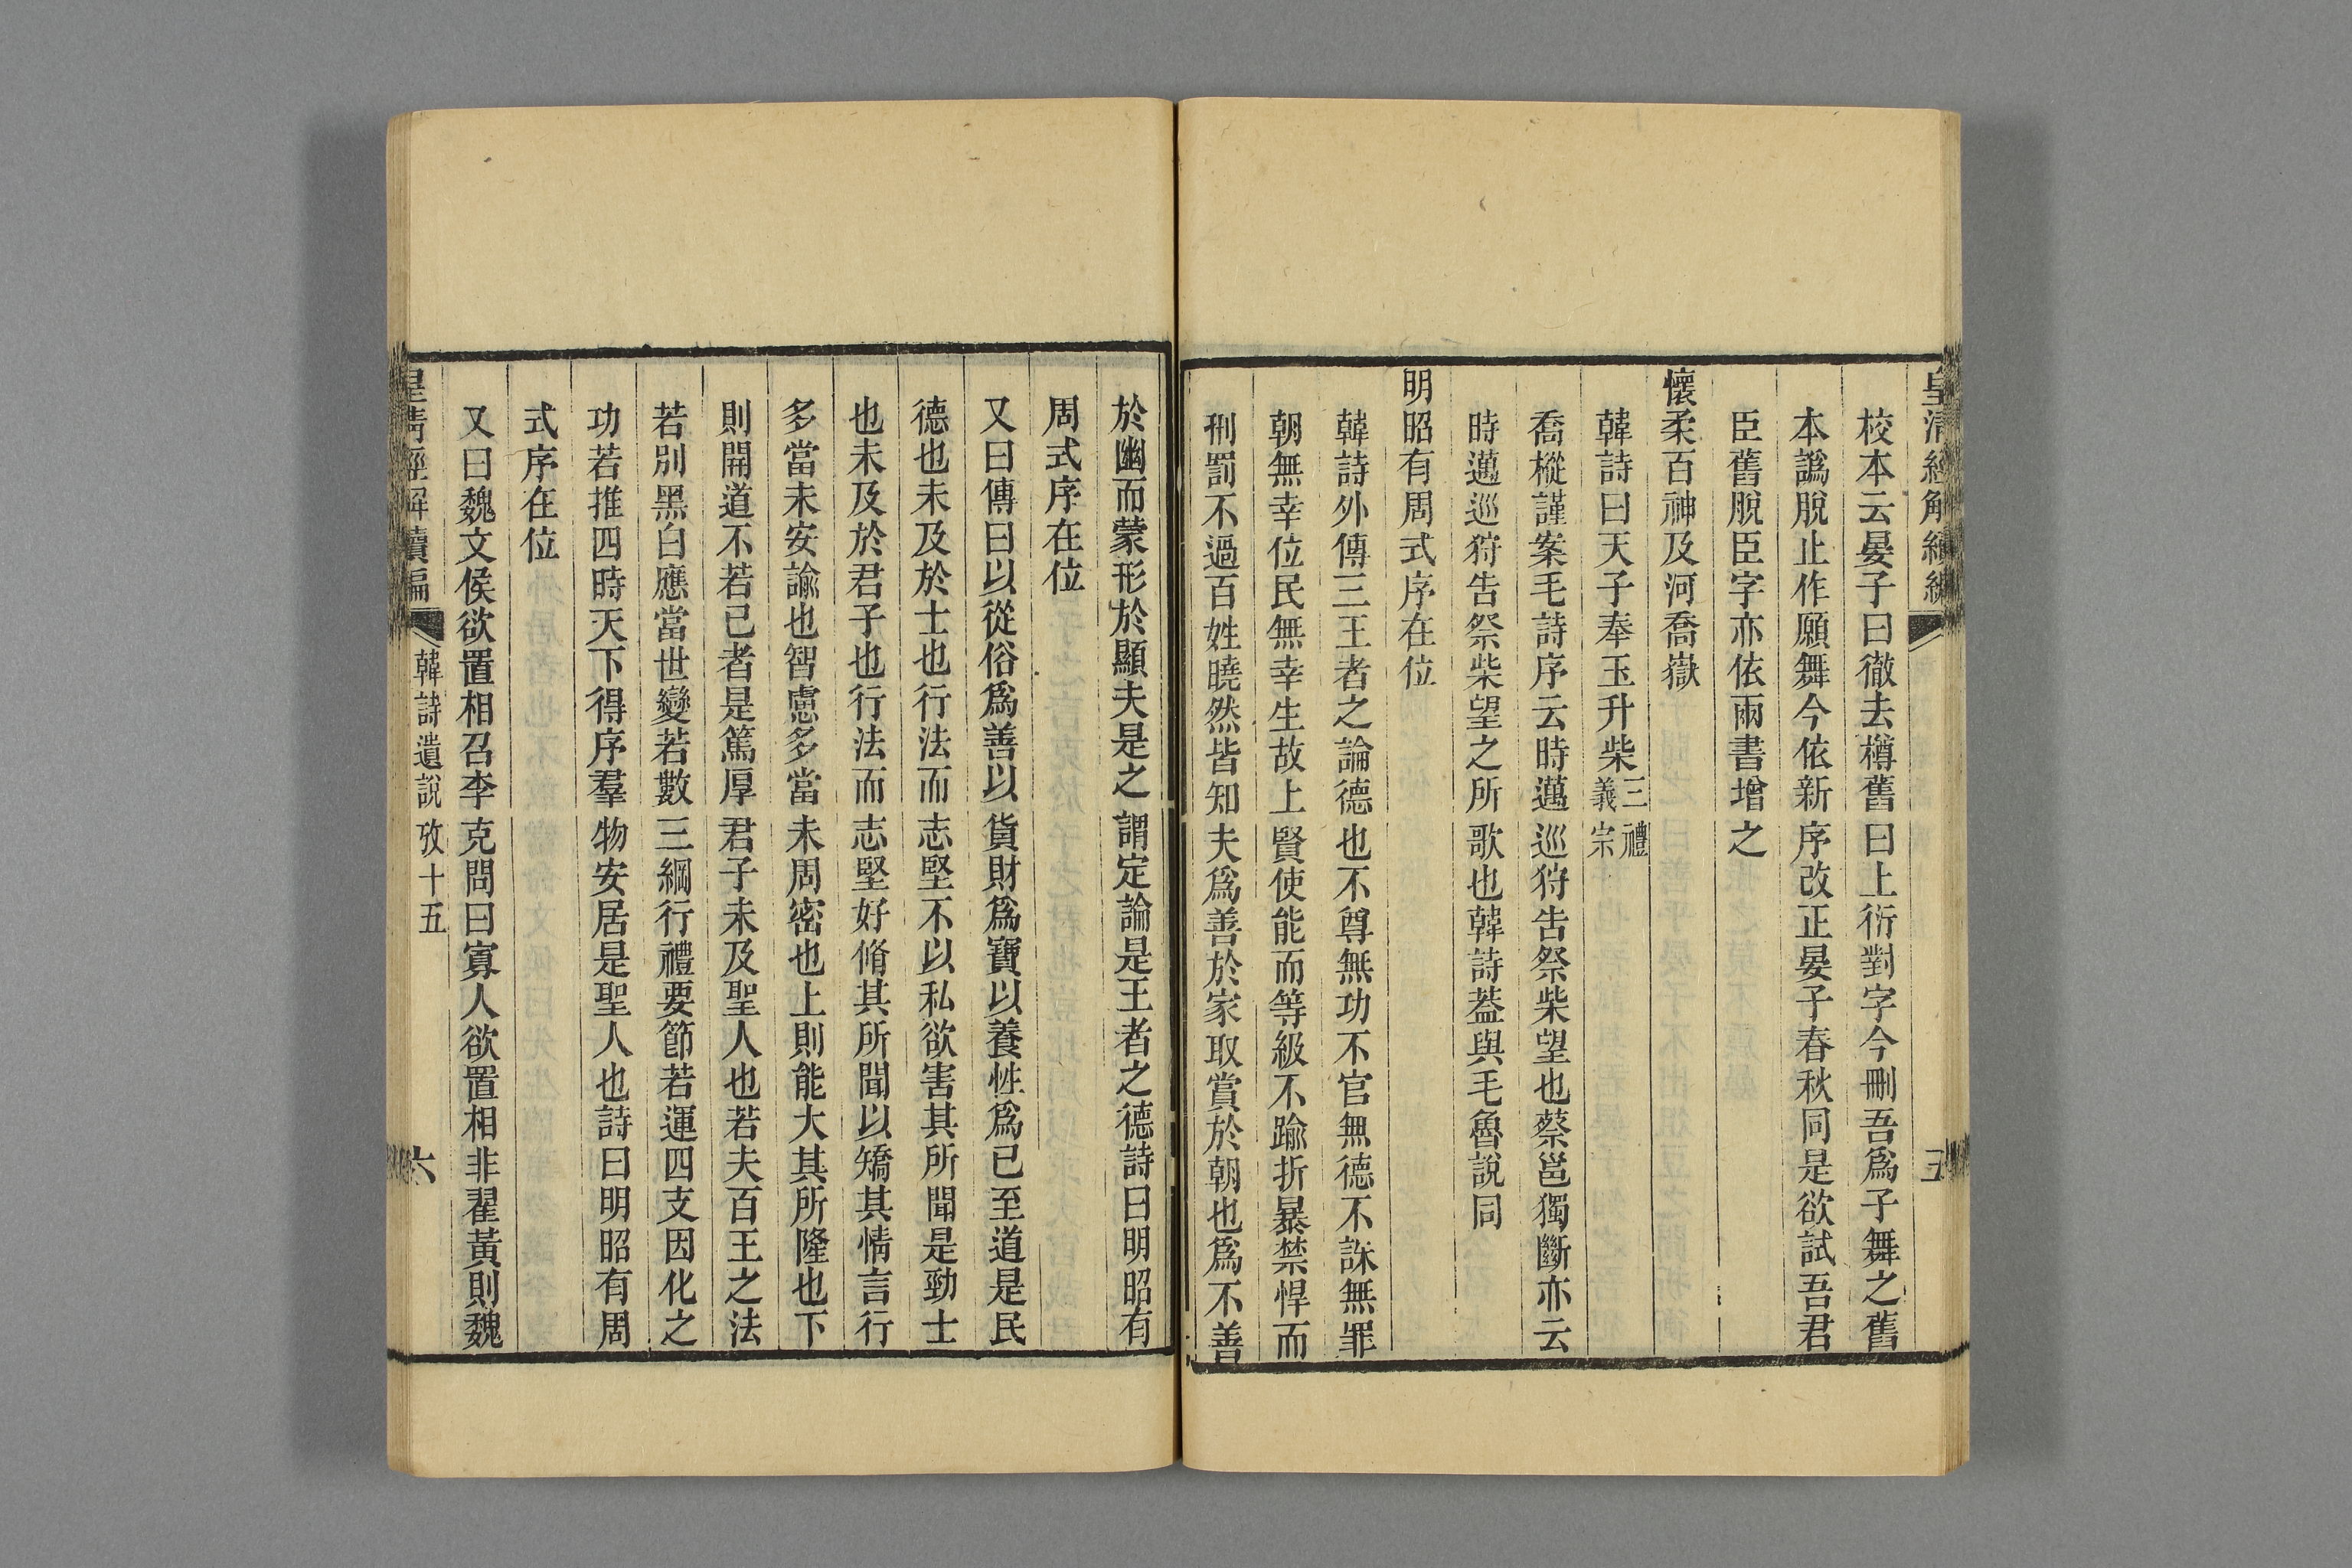 皇清經解續編
五
校本云晏子曰徹去樽舊曰上衍對字今刪吾爲子舞之舊
本譌脫止作願舞今依新序改正晏子春秋同是欲試吾君
臣舊脫臣字亦依兩書增之
懷柔百神及河喬嶽
韓詩曰天子奉玉升柴三禮義宗
喬樅謹案毛詩序云時邁巡狩告祭柴望也蔡邕獨斷亦云
時邁巡狩告祭柴望之所歌也韓詩葢與毛魯說同
明昭有周式序在位
韓詩外傳三王者之論德也不尊無功不官無德不誅無罪
朝無幸位民無幸生故上賢使能而等級不踰折暴禁悍而
刑罰不過百姓曉然皆知夫爲善於家取賞於朝也爲不善
於幽而蒙形於顯夫是之謂定論是王者之德詩曰明昭有
周式序在位
又曰傳曰以從俗爲善以貨財爲寶以養性爲已至道是民
德也未及於士也行法而志堅不以私欲害其所聞是勁士
也未及於君子也行法而志堅好脩其所聞以矯其情言行
多當未安諭也智慮多當未周密也上則能大其所隆也下
則開道不若已者是篤厚君子未及聖人也若夫百王之法
若別黑白應當世變若數三綱行禮要節若運四支因化之
功若推四時天下得序羣物安居是聖人也詩曰明昭有周
式序在位
又曰魏文侯欲置相召李克問曰寡人欲置相非翟黃則魏
皇清經解續編
韓詩遺說攷十五
六